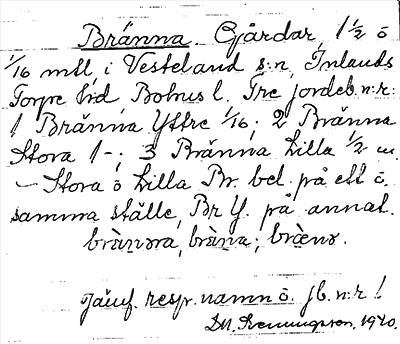 Bränna. Gårdar, 1 ½ o
1/16 mtl, i Vesteland s:n, Inlands
Torpe h:d Bohus l. Tre jordeb.n:r:
1 Bränna Yttre 1/16; 2 Bränna
Stora 1 -; 3 Bränna Lilla ½ m.
– Stora o Lilla Br. bel. på ett o.
samma ställe, Br Y. på annat.
bränna, bräna; bräno.
Jämf. resp. namn o. jb. n:r!
1920.